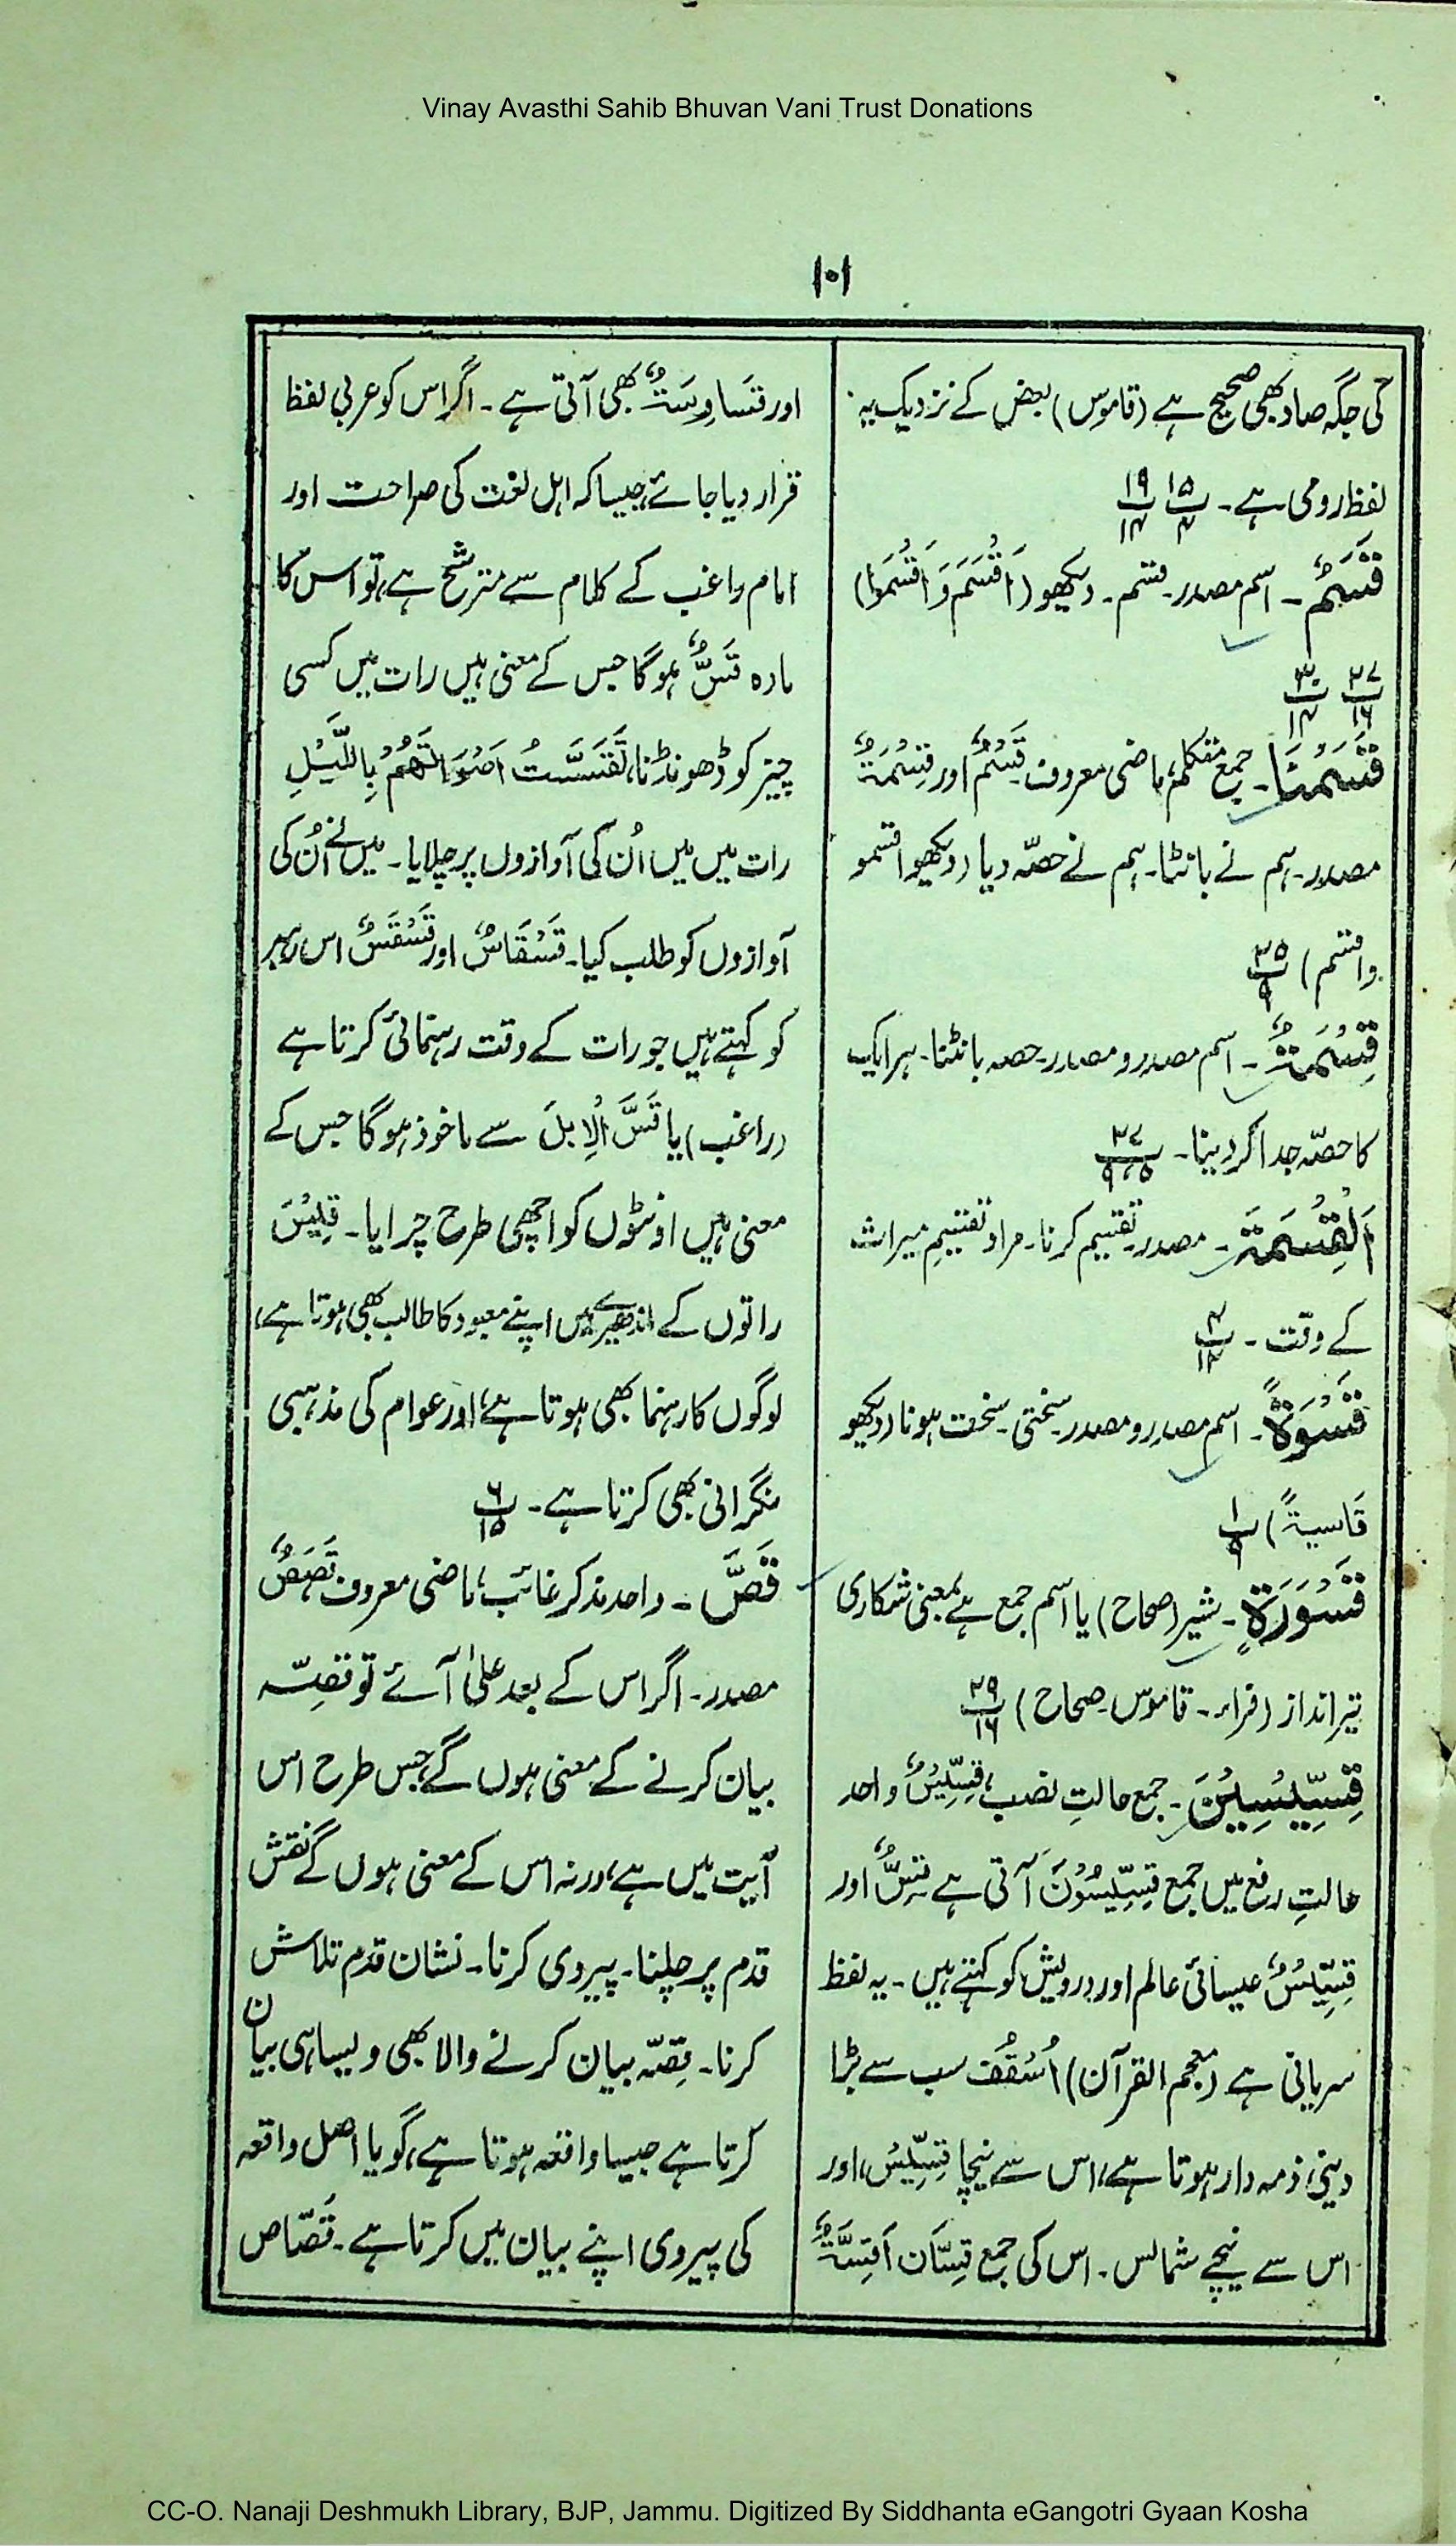 Vinay Avasthi Sahib Bhuvan Vani Trust Donations
۱۰۱
کی جگہ صاد بھی صحیح ہے (قاموس) بعض کے نزدیک یہ
لفظ رومی ہے۔ ۱۵/۴ ۱۹/۱۴
قَسَمٌ۔ اسم مصدر۔ قسم۔ دیکھو (اَقْسَمَ وَ اَقْسَمُوا)
۲۷/۱۶ ۳۰/۱۴
قَسَمْنَا۔ جمع متکلم، ماضی معروف۔ قَسْمٌ اور قِسْمَۃٌ
مصدر۔ ہم نے بانٹا۔ ہم نے حصّہ دیا (دیکھو اقسمو
واقسم) ۲۵/۹
قِسْمَۃٌ۔ اسم مصدر و مصدر۔ حصہ بانٹنا۔ ہر ایک
کا حصّہ جدا کر دینا۔ ۲۷/۹،۵
اَلْقِسْمَۃَ۔ مصدر۔ تقسیم کرنا۔ مراد تقسیمِ میراث
کے وقت۔ ۴/۱۲
قَسْوَۃً۔ اسم مصدر و مصدر۔ سختی۔ سخت ہونا (دیکھو
قَاسیۃً) ۱/۹
قَسْوَرَۃٍ۔ شیر (صحاح) یا اسم جمع ہے بمعنی شکاری
تیرانداز (فراء۔ قاموس۔ صحاح) ۲۹/۱۶
قِسِّیْسِیْنَ۔ جمع حالتِ نصب، قِسِّیْسٌ واحد
حالتِ رفع میں جمع قِسِّیْسُوْنَ آتی ہے قَسٌّ اور
قِسِّیْسٌ عیسائی عالم اور درویش کو کہتے ہیں۔ یہ لفظ
سریانی ہے (معجم القرآن) اُسْقُف سب سے بڑا
دینی ذمہ دار ہوتا ہے، اس سے نیچا قِسِّیْسٌ، اور
اس سے نیچے شماس۔ اس کی جمع قِسَّان اَقِسَّۃٌ
اور قَسَاوِسَۃٌ بھی آتی ہے۔ اگر اس کو عربی لفظ
قرار دیا جائے، جیسا کہ اہل لغت کی صراحت اور
امام راغب کے کلام سے مترشح ہے، تو اس کا
مادہ قَسٌّ ہوگا جس کے معنی ہیں رات میں کسی
چیز کو ڈھونڈنا، تَقَسَّسْتُ اَصْوَاتَھُمْ بِاللَّیْلِ
رات میں میں اُن کی آوازوں پر چلایا۔ میں نے اُن کی
آوازوں کو طلب کیا۔ قَسْقَاسٌ اور قَسْقَسٌ اس رہبر
کو کہتے ہیں جو رات کے وقت رہنمائی کرتا ہے
(راغب) یا قَسَّ الْاِبِلَ سے ماخوذ ہوگا جس کے
معنی ہیں اونٹوں کو اچھی طرح چرایا۔ قِیْسَ
راتوں کے اندھیرے میں اپنے معبود کا طالب بھی ہوتا ہے،
لوگوں کا رہنما بھی ہوتا ہے، اور عوام کی مذہبی
نگرانی بھی کرتا ہے۔ ۶/۱۵
قَصَّ۔ واحد مذکر غائب، ماضی معروف قَصَصٌ
مصدر۔ اگر اس کے بعد علیٰ آئے تو قصّہ
بیان کرنے کے معنی ہوں گے، جس طرح اس
آیت میں ہے، ورنہ اس کے معنی ہوں گے نقش
قدم پر چلنا۔ پیروی کرنا۔ نشان قدم تلاش
کرنا۔ قِصّہ بیان کرنے والا بھی ویسا ہی بیان
کرتا ہے جیسا واقعہ ہوتا ہے، گویا اصل واقعہ
کی پیروی اپنے بیان میں کرتا ہے۔ قَصّاص
CC-O. Nanaji Deshmukh Library, BJP, Jammu. Digitized By Siddhanta eGangotri Gyaan Kosha